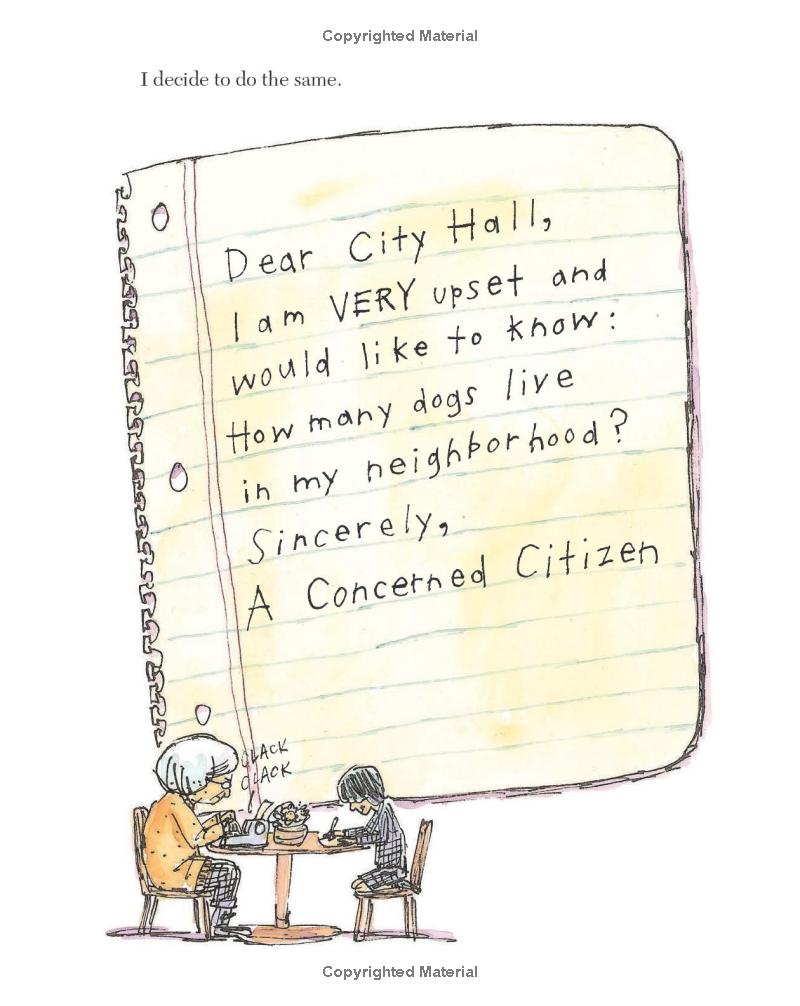 Copyrighted Material
I decide to do the same.
Dear City Hall,
I am VERY upset and
would like to know:
How many dogs live
in my neighborhood?
Sincerely,
A Concerned Citizen
CLACK
CLACK
Copyrighted Material